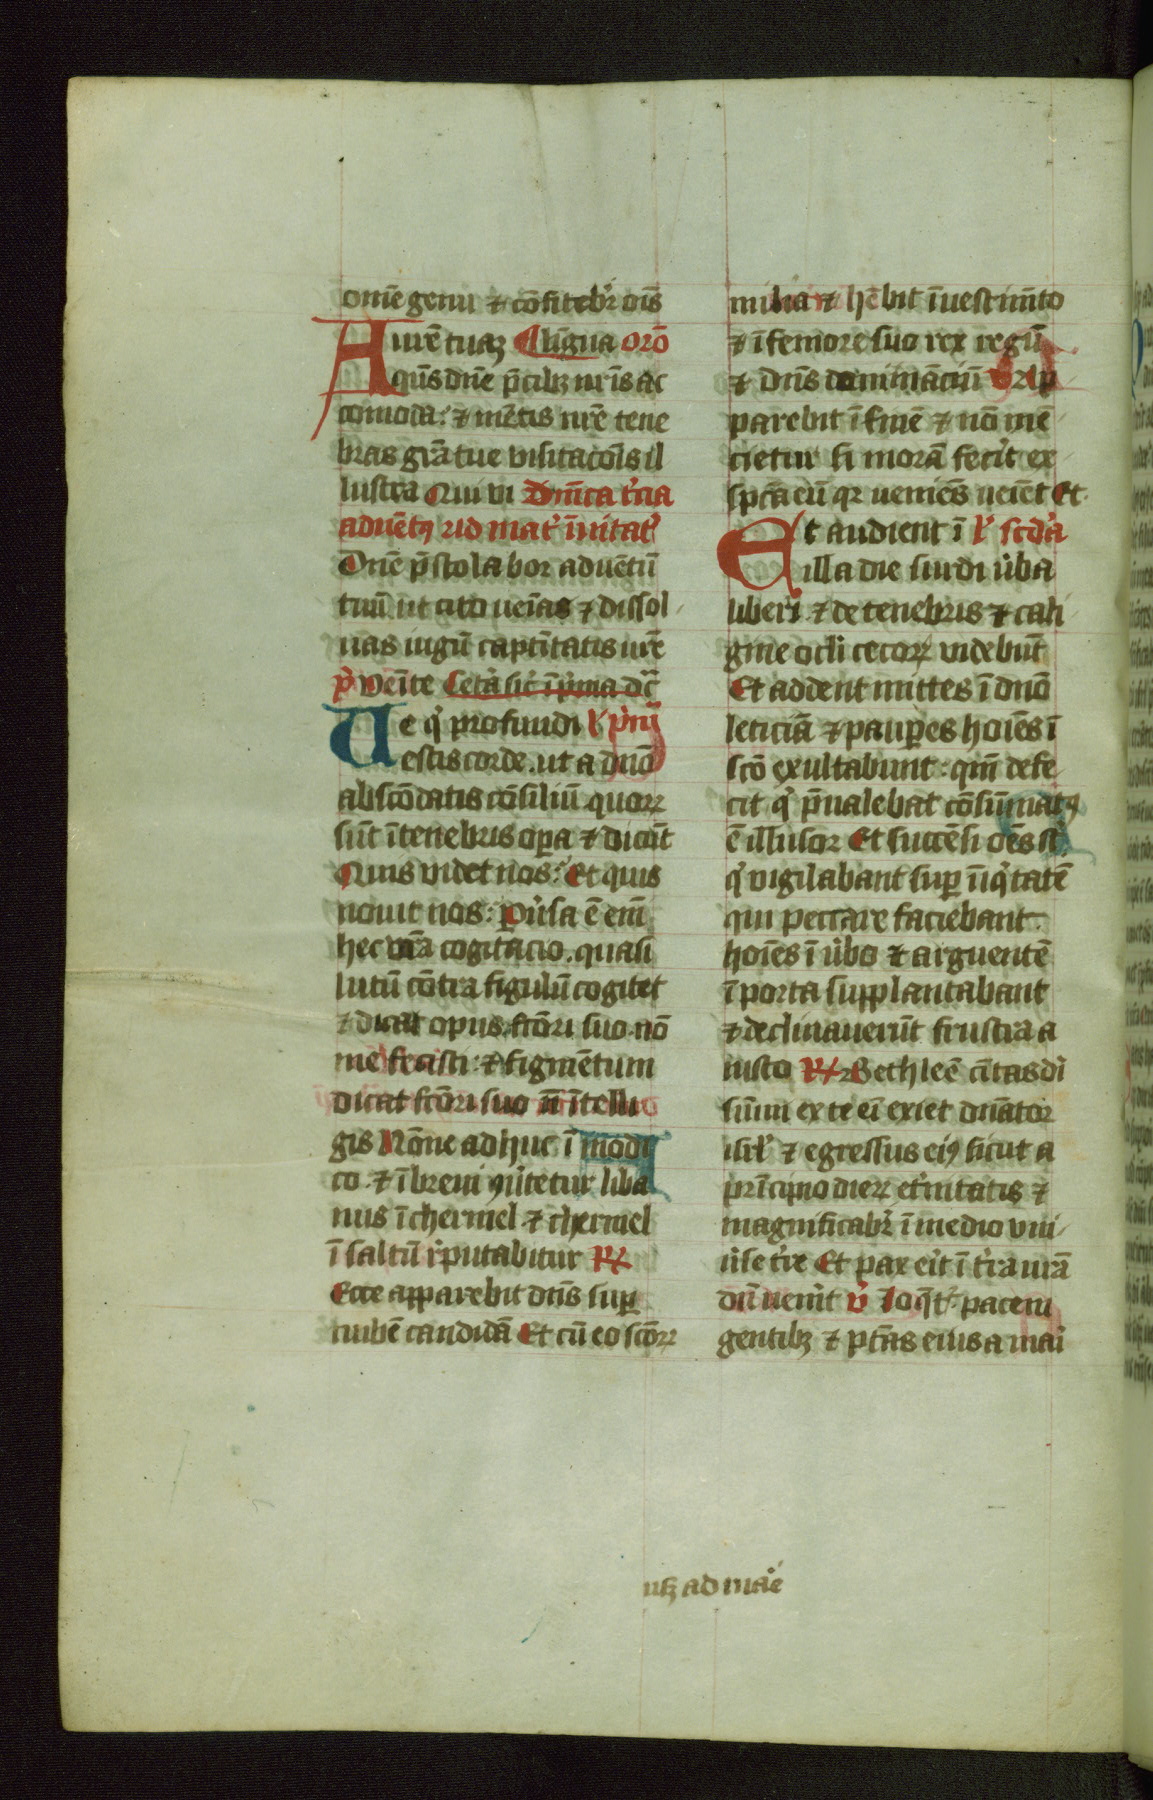 om̄e genu ⁊ cōfiteb̄r om̄s
Aurē tuaꝫ Cl̄igua orō
q̄s dn̄e p̄cibꝫ nr̄is ac
comoda: ⁊ mētis nr̄e tene
bras gr̄a tue visitacōis il
lustra Qui vi Dn̄ica t'cia
advētꝰ ad mat' īvitat'
Dn̄e p̄stolabor advētū
tuū ut cito venias ⁊ dissol
uas iugū captītatis nr̄e
p̄ venite Cet'a sic' ī p'ma dc̄
Ue q' profundi l' p'm̄
estis corde. ut a dn̄o
abscōdatis cōsiliū quorꝝ
sūt ī tenebris opa ⁊ dicūt
Quis videt nos: Et quis
novit nos: pv'sa ē em̄
hec vr̄a cogitacio. quasi
lutū cōtra figulū cogitet
⁊ dicat opus fcōri suo. nō
me fecisti: ⁊ figmētum
dicat fcōri suo nō ītelli
gis Nōne adhuc ī modi
co ⁊ ī brevi ꝯv'tetur liba
nus ī chermel ⁊ chermel
ī saltū r'putabitur R
Ecce apparebit dn̄s sup
nubē candidā Et cū eo scōrꝝ
milia ⁊ hēbit ī vestimēto
⁊ ī femore suo rex regū
⁊ dn̄s dominanciū V Ap
parebit ī finē ⁊ nō mē
cietur si morā fecit ex
specta eū qr veniēs veiet Et
Et audient ī l' scd'a
illa die surdi v'ba
libri ⁊ de tenebris ⁊ cali
gine ocl'i cecorꝝ videbūt
Et addent mittes ī dn̄o
leticiā ⁊ pauperes hoīes ī
scō exultabunt: qm̄ defe
cit q' p̄valebat cōsūmatꝰ
ē illusor Et succēsi oēs st
q' vigilabant sup īiq'tatē
qui peccare faciebant
hoīes ī v'bo ⁊ arguentē
ī porta supplantabant
⁊ declinaverūt frustra a
iusto R Bethleē cītas di
sūmi ex te ei exiet dn̄ator
isrl' ⁊ egressus eiꝰ sicut a
prīcipio dierꝝ et'nitatis ⁊
magnificabr' ī medio vni
v'se t're Et pax erit ī t'ra nr̄a
dū ven'it V Loq̄t' pacem
gentibꝫ ⁊ ptās eius a mari
usqꝫ ad mare